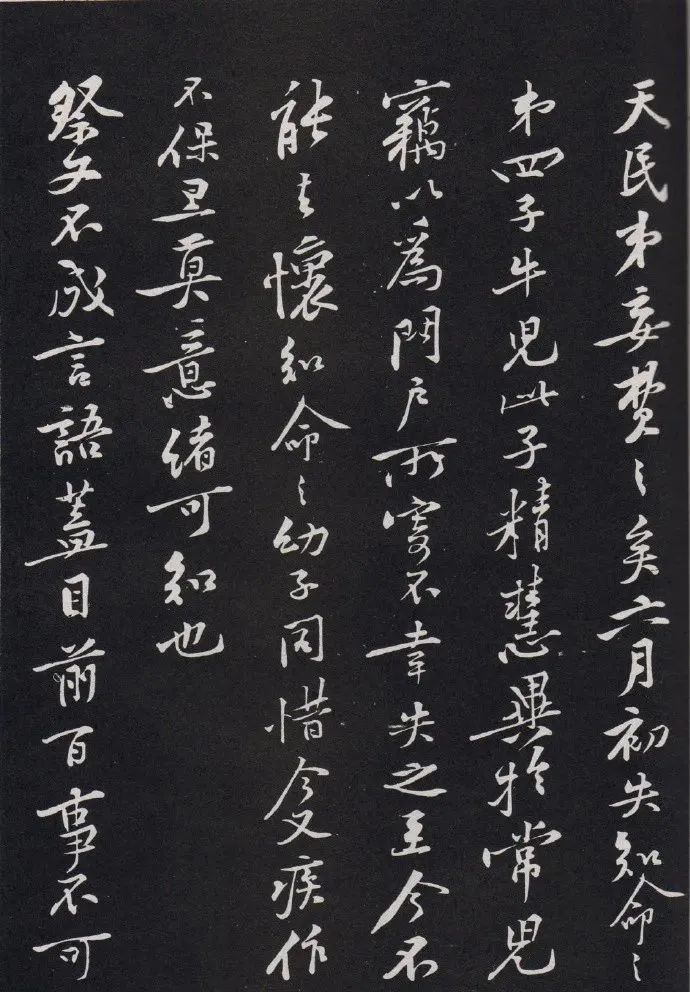 天民弟妄費之矣六月初失知命之
第四子牛兒此子精慧異於常兒
竊以為門戶所寄不幸失之至今不
能去懷知命之幼子同惜今又疾作
不保旦莫意緒可知也
祭文不成言語蓋目前百事不可